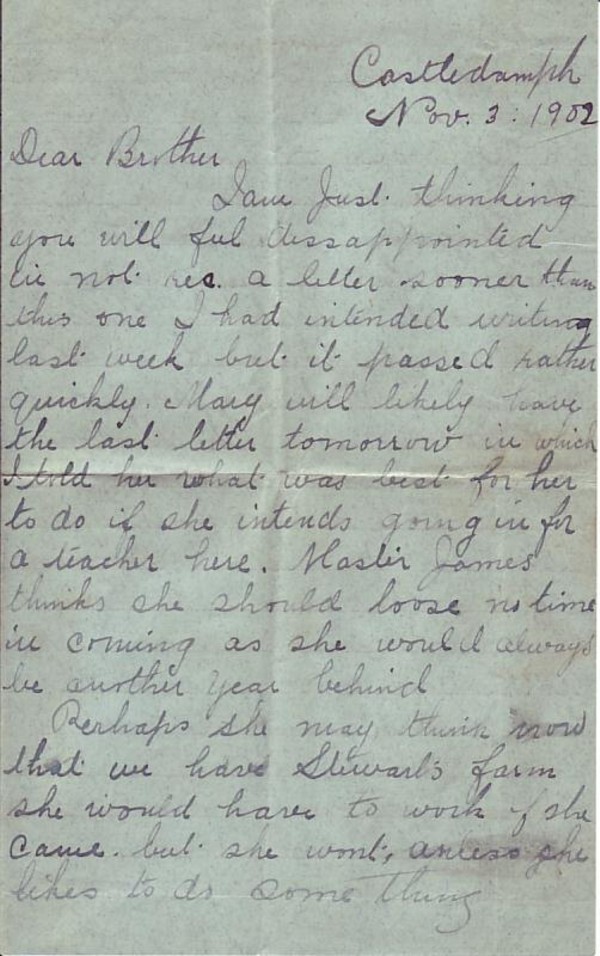 Castledamph
Nov. 3: 1902
Dear Brother
I am Just thinking
you will ful dissappointed
in not rec. a letter sooner than
this one I had intended writing
last week but it passed rather
quickly. Mary will likely have
the last letter tomorrow in which
I told her what was best for her
to do if she intends going in for
a teacher here. Master James
thinks she should loose no time
in coming as she would always
be another year behind
Perhaps she may think now
that we have Stewart's farm
she would have to work if she
came. but she wont, unless she
likes to do some thing